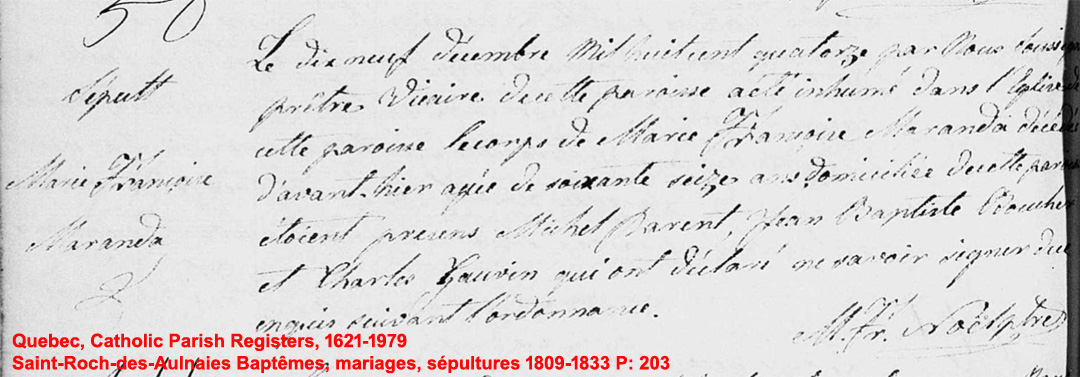 50
Sepult
Marie Françoise
Maranda
Le dix neuf décembre Mil huit cent quatorze par Nous Soussigné
prêtre Vicaire de cette paroisse a été inhumé dans l'Eglise de
cette paroisse le corps de Marie Françoise Maranda décédée
d'avant-hier agée de soixante seize ans domiciliée de cette paroisse
étoient presens Michel Parent, Jean Baptiste Boucher
et Charles Gauvin qui ont déclaré ne savoir signer de ce
enquis suivant l'ordonnance.
M. Fr. Noël ptre
Quebec, Catholic Parish Registers, 1621-1979
Saint-Roch-des-Aulnaies Baptêmes, mariages, sépultures 1809-1833 P: 203